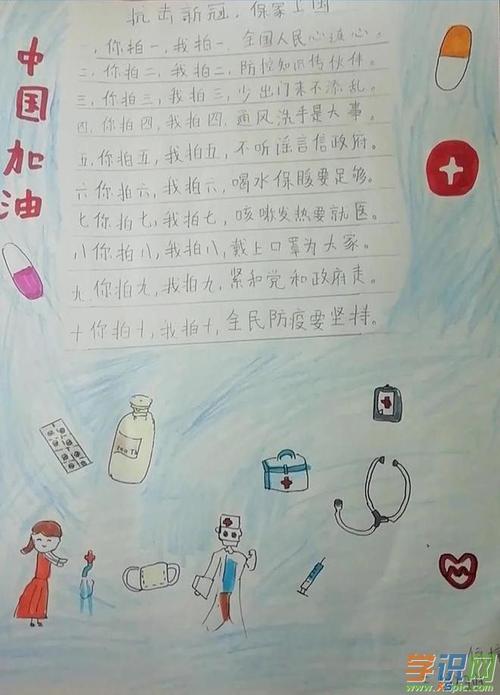 抗击新冠,保家卫国
中国加油
一、你拍一,我拍一,全国人民心连心。
二、你拍二,我拍二,防控知识传伙伴。
三、你拍三,我拍三,少出门来不添乱。
四、你拍四,我拍四,通风洗手是大事。
五、你拍五,我拍五,不听谣言信政府。
六 你拍六,我拍六,喝水保暖要足够。
七 你拍七,我拍七,咳嗽发热要就医。
八 你拍八,我拍八,戴上口罩为大家。
九 你拍九,我拍九,紧和党和政府走。
十 你拍十,我拍十,全民防疫要坚持。
学识网